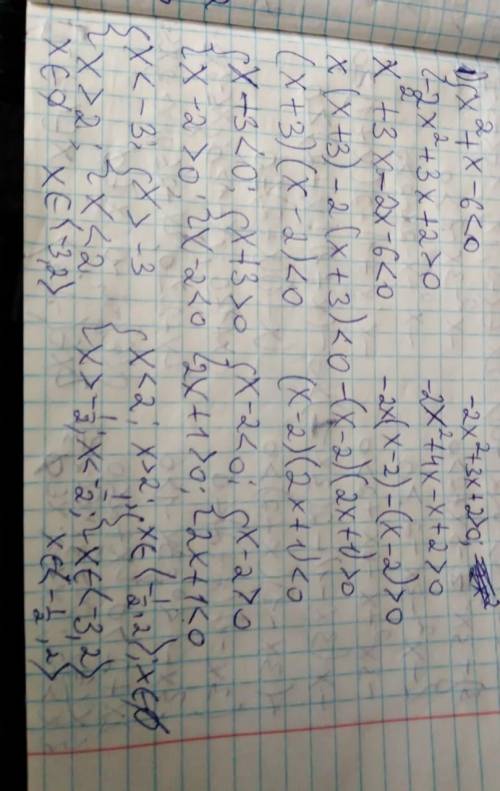 1) { x² + x - 6 < 0
{ -2x² + 3x + 2 > 0
x² + 3x - 2x - 6 < 0
x (x+3) - 2 (x+3) < 0
(x+3) (x-2) < 0
{ x+3 < 0; { x+3 > 0
{ x-2 > 0; { x-2 < 0
{ x < -3; { x > -3
{ x > 2; { x < 2
x ∈ ∅ x ∈ (-3, 2)
-2x² + 3x + 2 > 0;
-2x² + 4x - x + 2 > 0
-2x(x-2) - (x-2) > 0
-(x-2)(2x+1) > 0
(x-2)(2x+1) < 0
{ x-2 < 0; { x-2 > 0
{ 2x+1 > 0; { 2x+1 < 0
{ x < 2; x > 2; { x ∈ (-1/2, 2); x ∈ ∅
{ x > -1/2; x < -1/2; { x ∈ (-3, 2)
x ∈ (-1/2, 2)